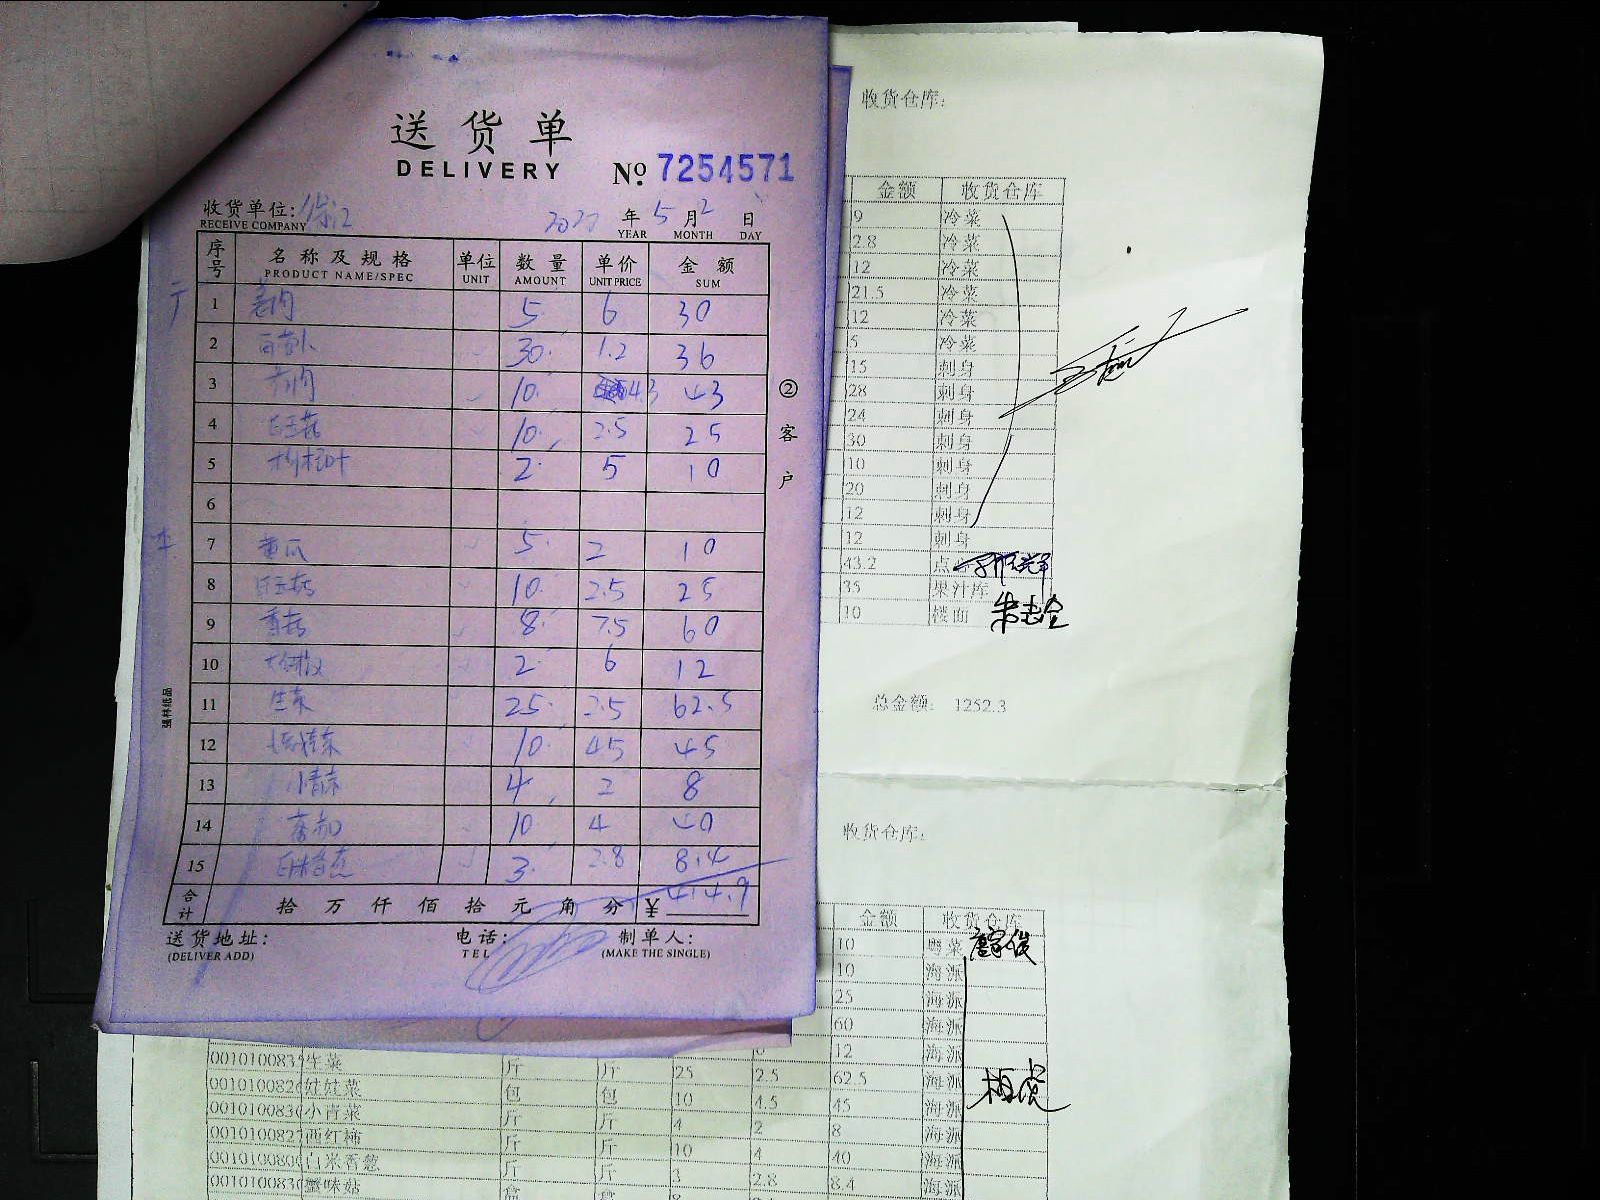 送货单
DELIVERY
No. 7254571
收货单位:
RECEIVE COMPANY
年 5 月 2 日
YEAR MONTH DAY
序号 名称及规格 单位 数量 单价 金额
PRODUCT NAME/SPEC UNIT AMOUNT UNIT PRICE SUM
1 5 6 30
2 30 1.2 36
3 10 4.3 43
4 白玉菇 10 2.5 25
5 2 5 10
6
7 黄瓜 5 2 10
8 白玉菇 10 2.5 25
9 香菇 8 7.5 60
10 2 6 12
11 生菜 25 2.5 62.5
12 10 4.5 45
13 小青菜 4 2 8
14 10 4 40
15 白米香葱 3 2.8 8.4
合计 拾万仟佰拾元角分 ¥ 414.9
送货地址: 电话: 制单人:
(DELIVER ADD) TEL (MAKE THE SINGLE)
②客户
强林纸品
收货仓库:
金额 收货仓库
9 冷菜
2.8 冷菜
12 冷菜
21.5 冷菜
12 冷菜
5 冷菜
15 刺身
28 刺身
24 刺身
30 刺身
10 刺身
20 刺身
12 刺身
12 刺身
43.2 点
35 果汁库
10 楼面
总金额: 1252.3
收货仓库:
金额 收货仓库
10 粤菜
10 海派
25 海派
60 海派
6 12 海派
001010083 生菜 斤 斤 25 2.5 62.5 海派
001010082 娃娃菜 包 包 10 4.5 45 海派
001010083 小青菜 斤 斤 4 2 8 海派
001010082 西红柿 斤 斤 10 4 40 海派
001010080 白米香葱 斤 斤 3 2.8 8.4 海派
001010083 蟹味菇